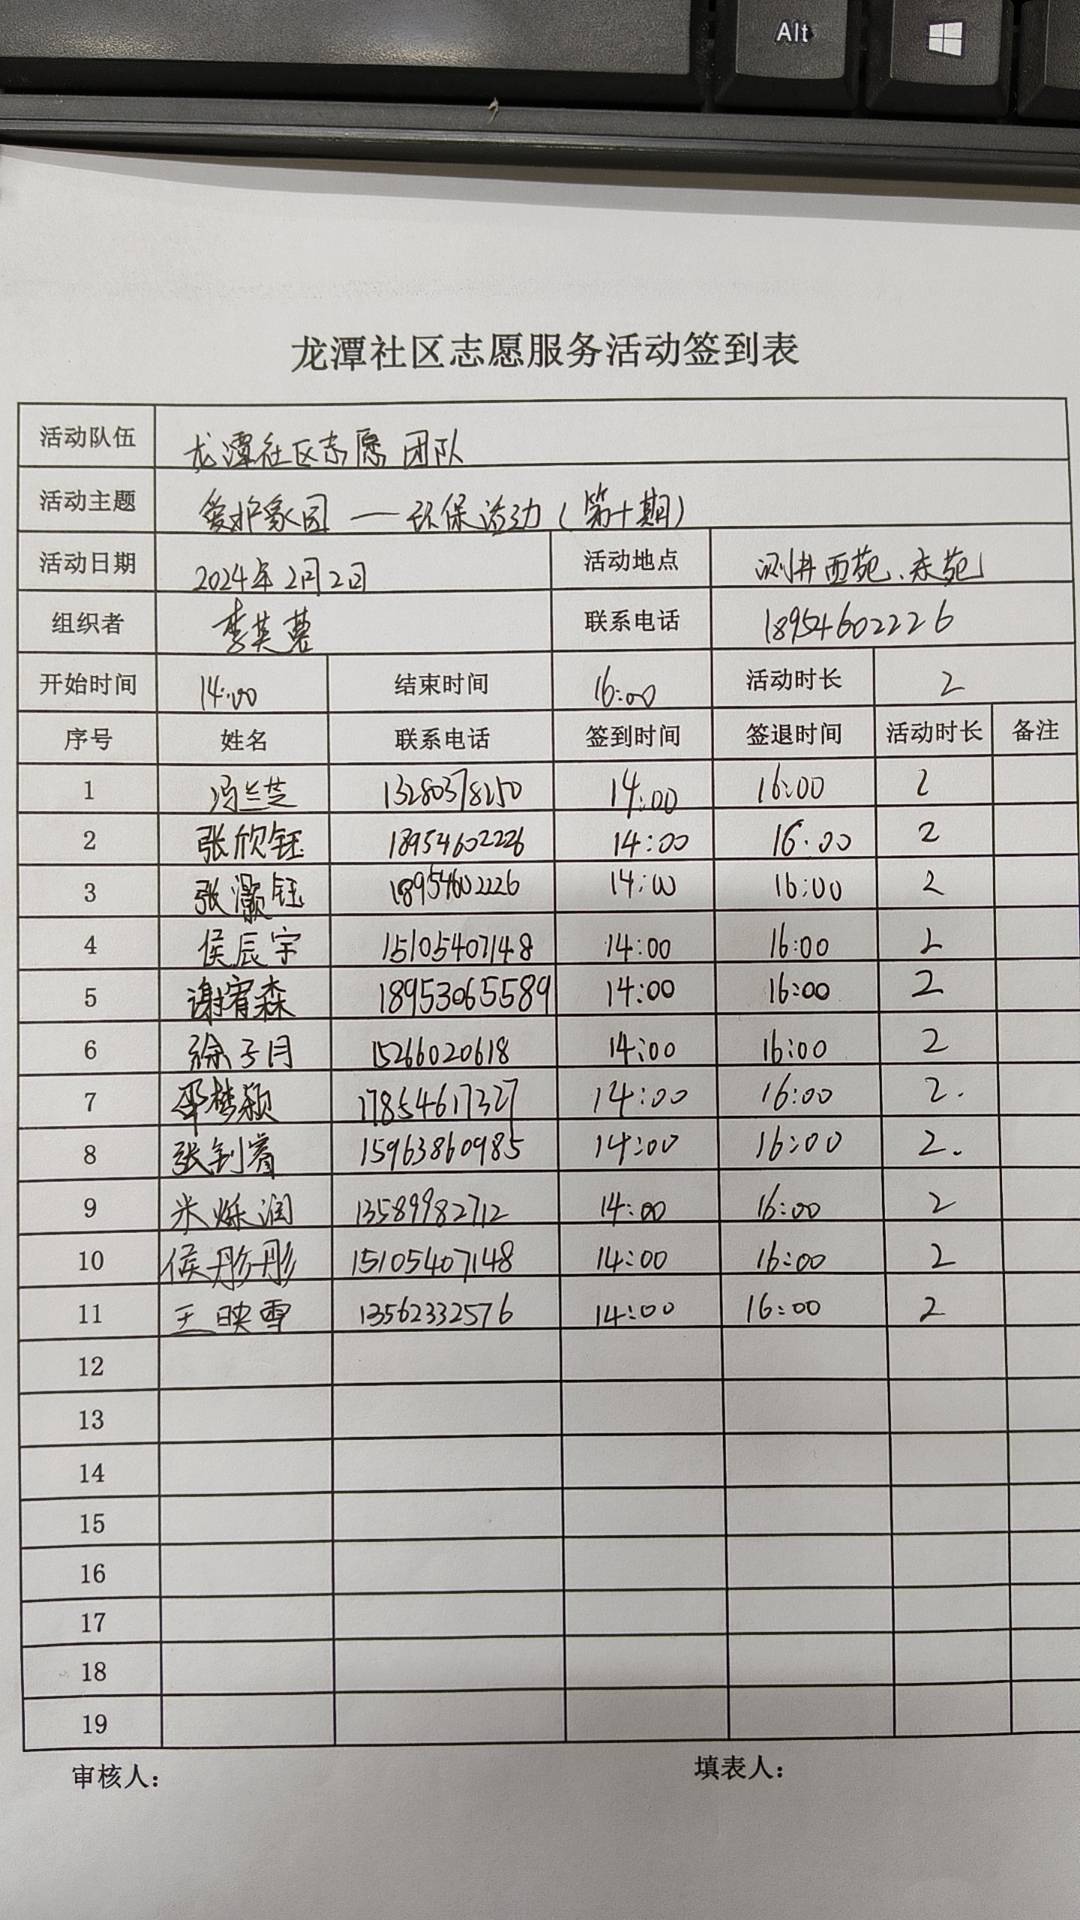 Alt
龙潭社区志愿服务活动签到表
活动队伍 龙潭社区志愿团队
活动主题 爱护家园——环保活动(第十期)
活动日期 2024年2月2日 活动地点 测井西苑、东苑
组织者 李英 联系电话 18954602226
开始时间 14:00 结束时间 16:00 活动时长 2
序号 姓名 联系电话 签到时间 签退时间 活动时长 备注
1 冯兰芝 13280378250 14:00 16:00 2
2 张欣钰 18954602226 14:00 16:00 2
3 张灏钰 18954602226 14:00 16:00 2
4 侯辰宇 15105407148 14:00 16:00 2
5 谢宥森 18953065589 14:00 16:00 2
6 徐子月 15266020618 14:00 16:00 2
7 梦颖 17854617327 14:00 16:00 2.
8 张钊睿 15963860985 14:00 16:00 2.
9 米烁润 13589982712 14:00 16:00 2
10 侯彤彤 15105407148 14:00 16:00 2
11 王映雪 13562332576 14:00 16:00 2
12
13
14
15
16
17
18
19
审核人: 填表人: